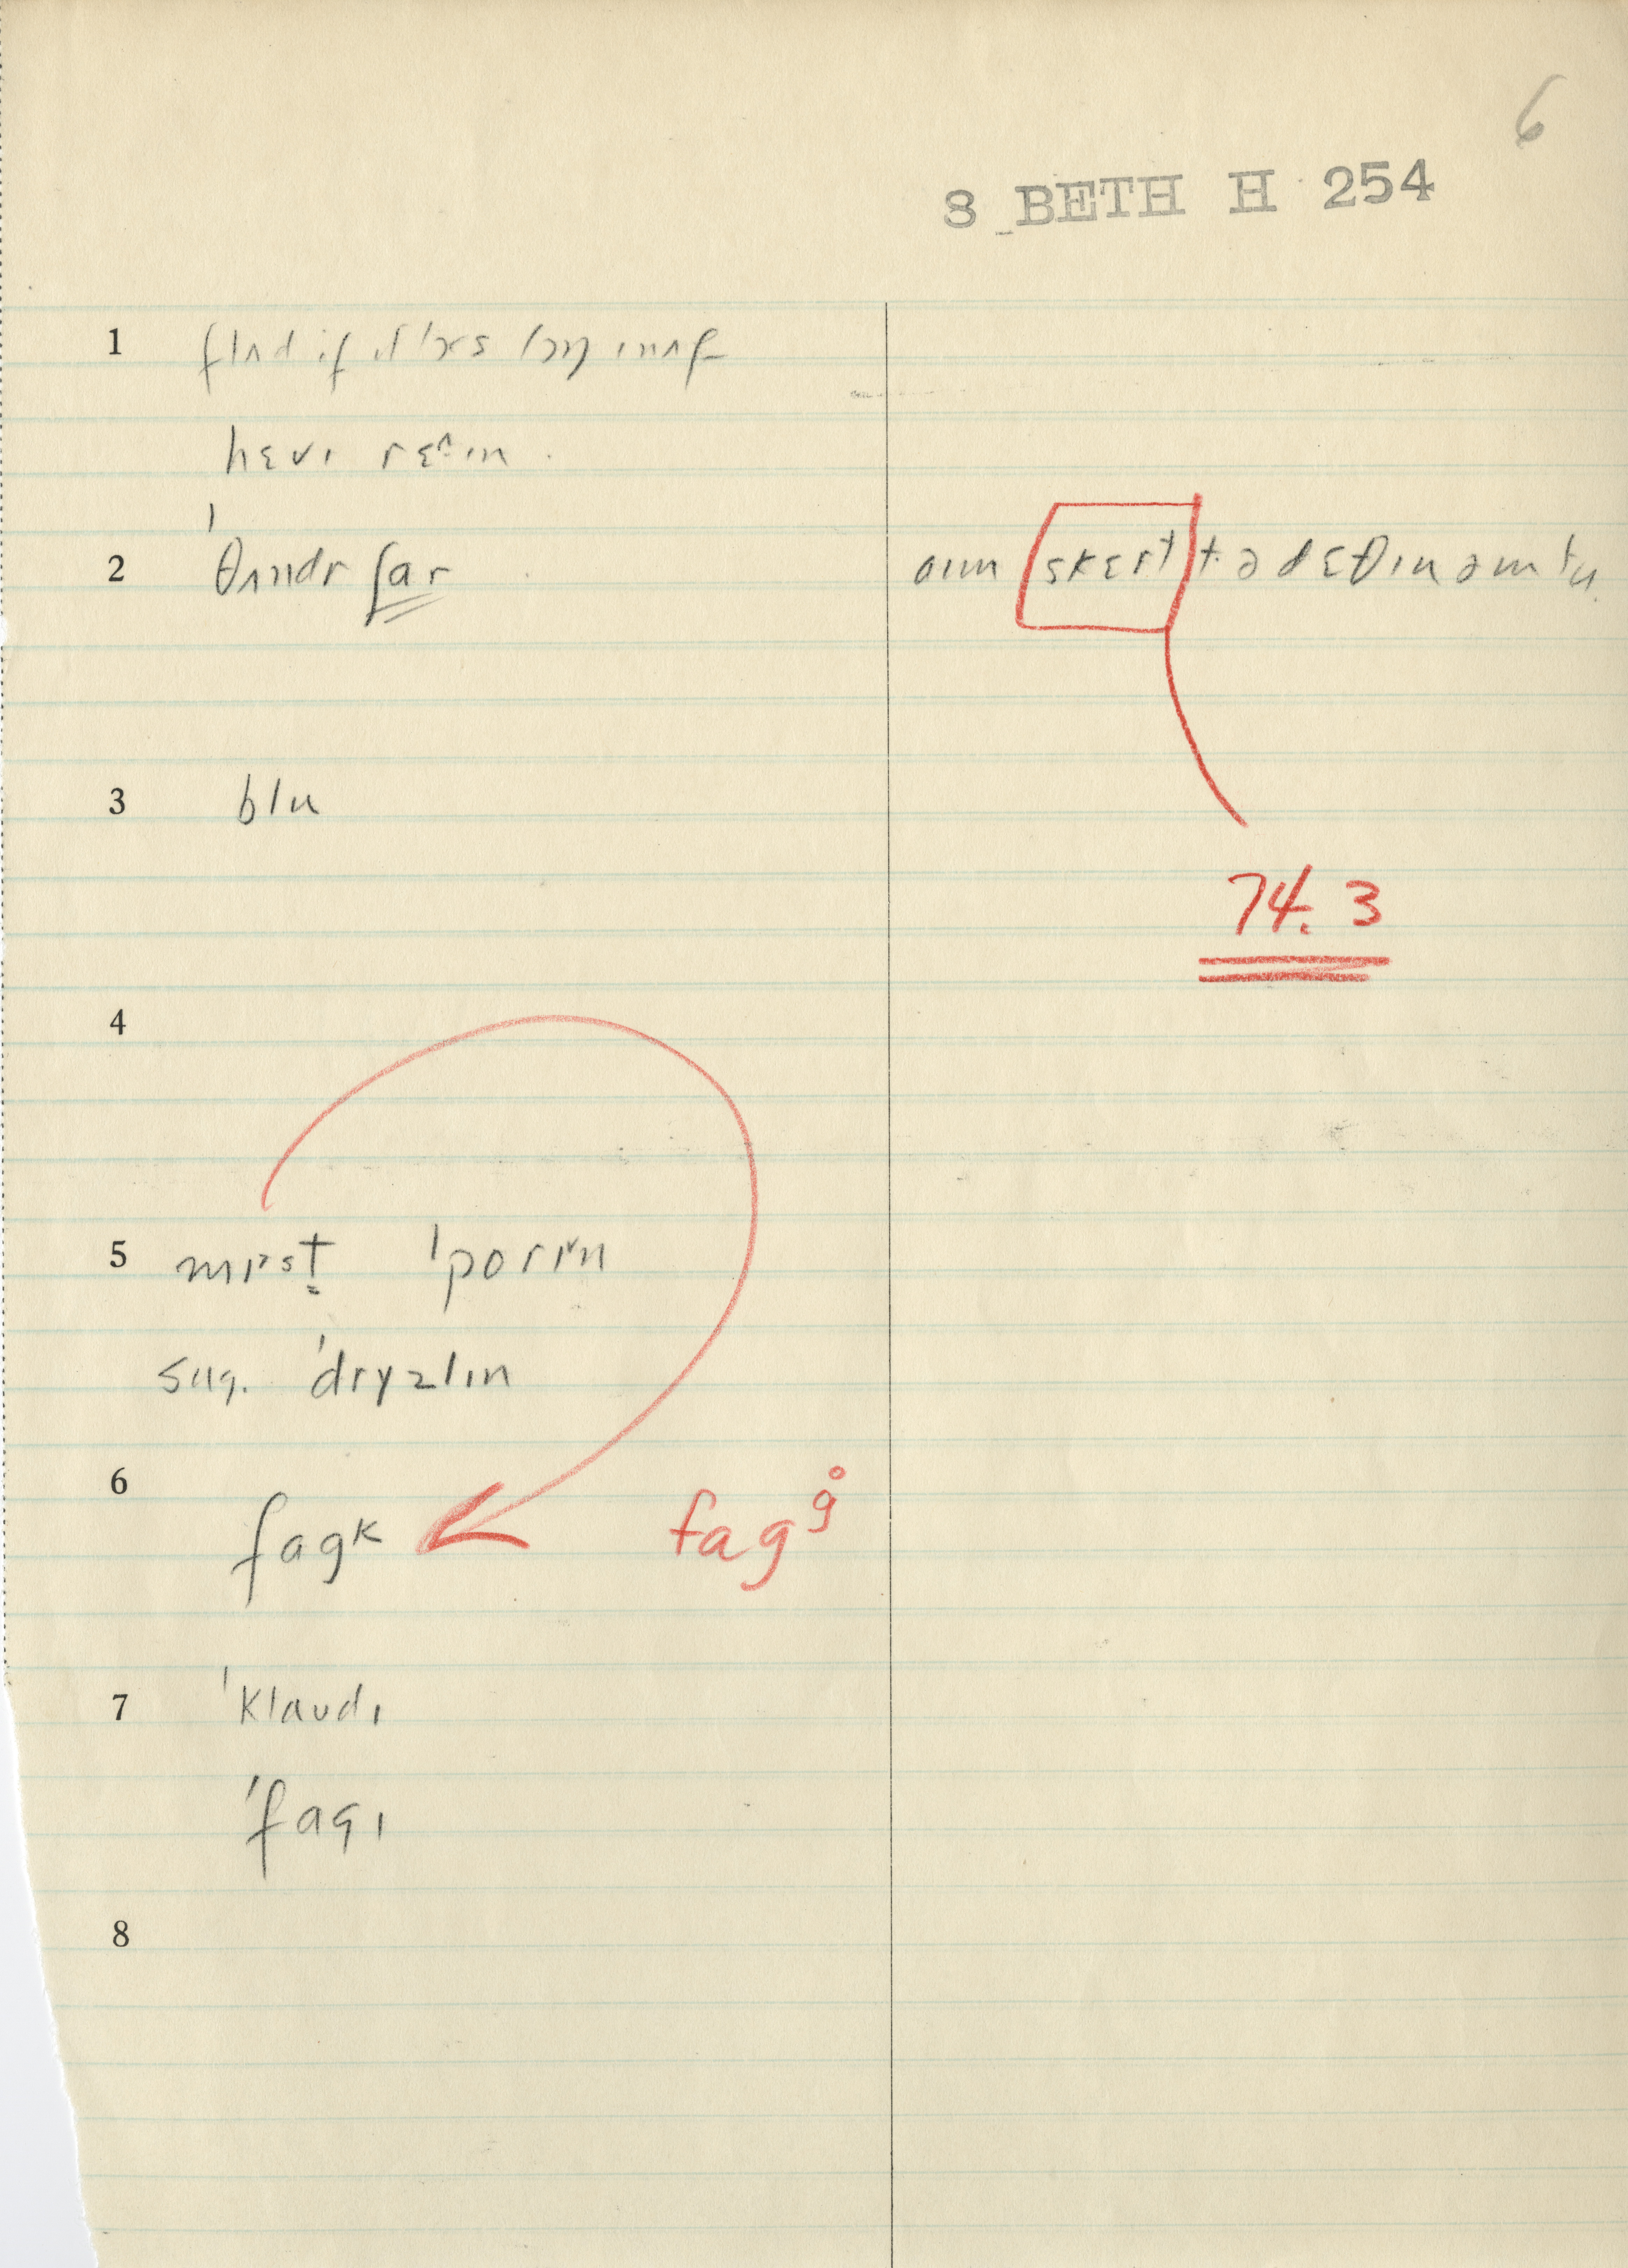 6
8 BETH H 254
1 flʌd if ɪt ləsts lɔŋ ɪnʌf
hɛvɪ rɛ^ɪn.
2 ˈθʌndr ʃar aɪm skɛrt tə dɛθ ɪn əm tu
3 blu
74.3
4
5 mɪst ˈporɪn
sug. ˈdryzlɪn
6 fagᵏ fagg̊
7 ˈklaudɪ
ˈfagɪ
8